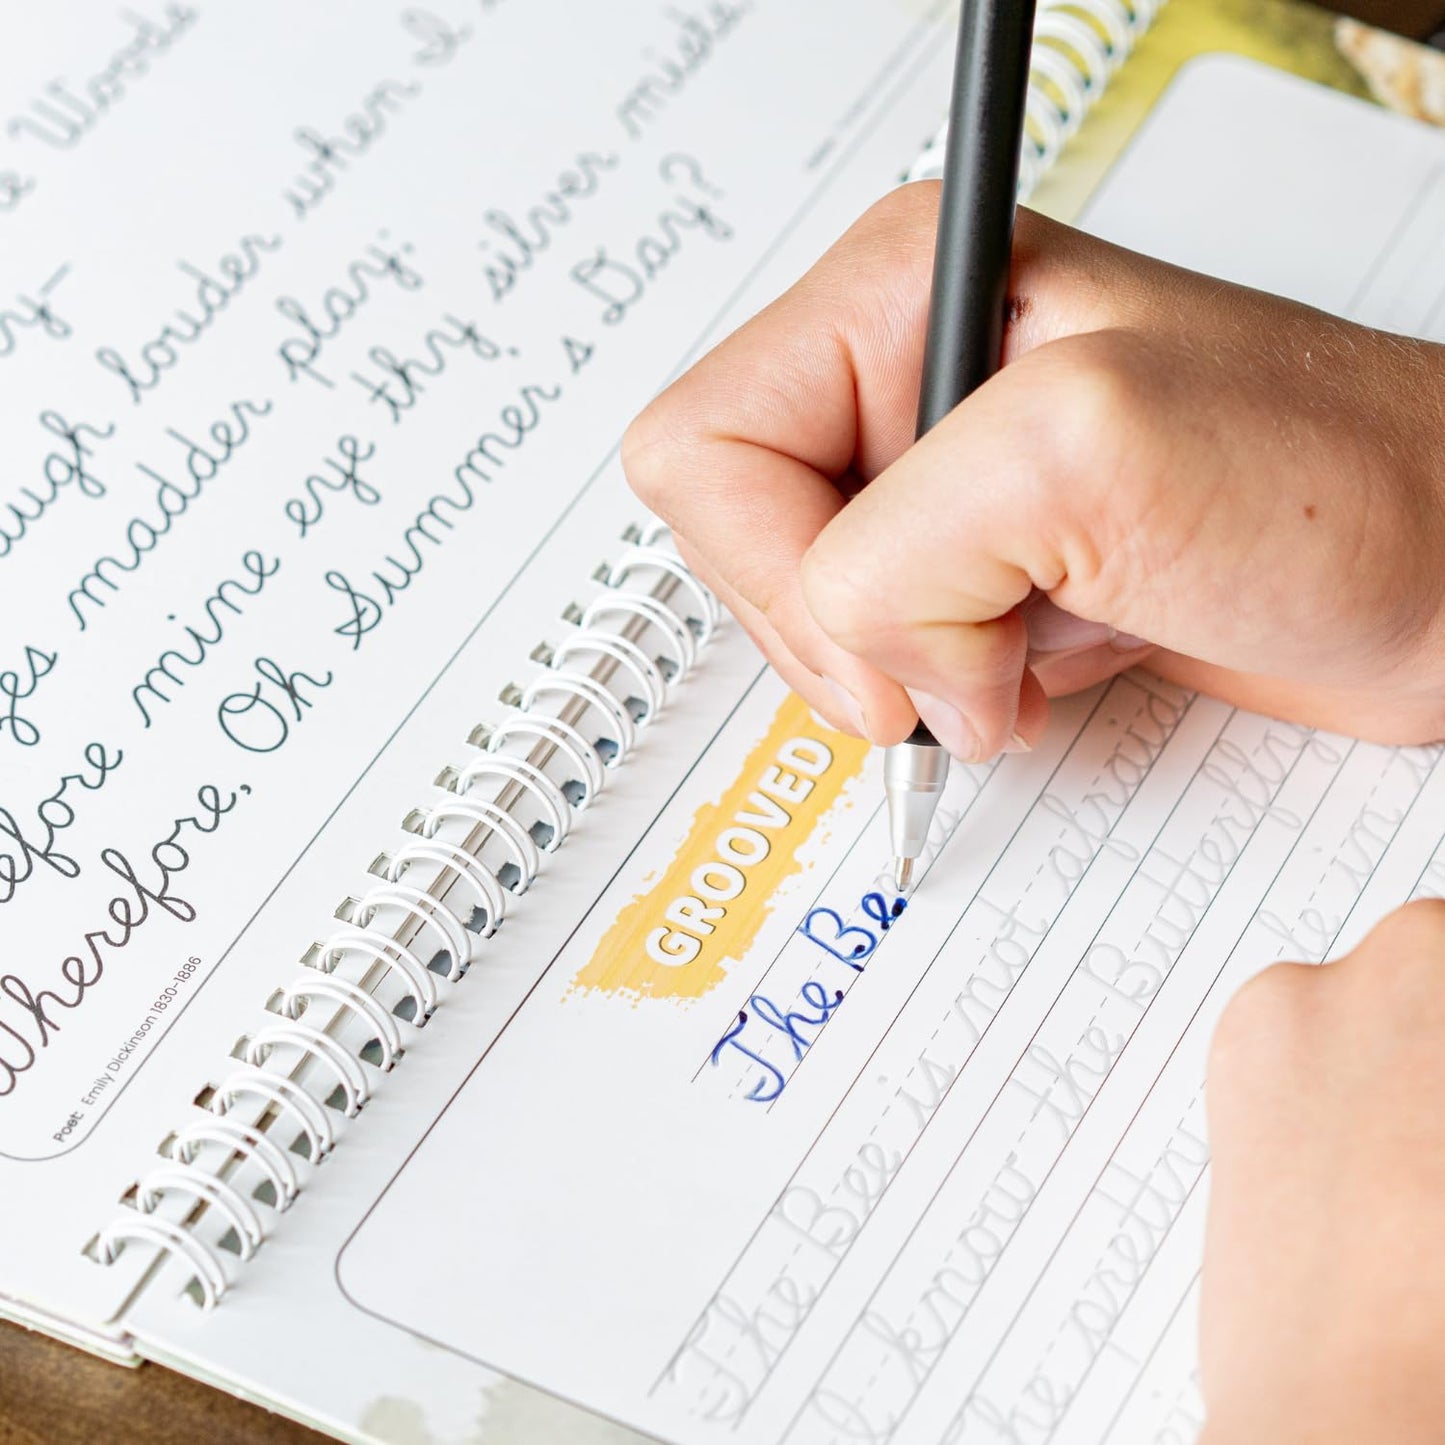 e Woods
y—
augh louder when I
zes madder play;
efore mine eye thy silver mists
Wherefore, Oh Summer's Day?
Poet: Emily Dickinson 1830-1886
GROOVED
The Be
The Bee is not afraid
I know the Butterfly
The pretty le in